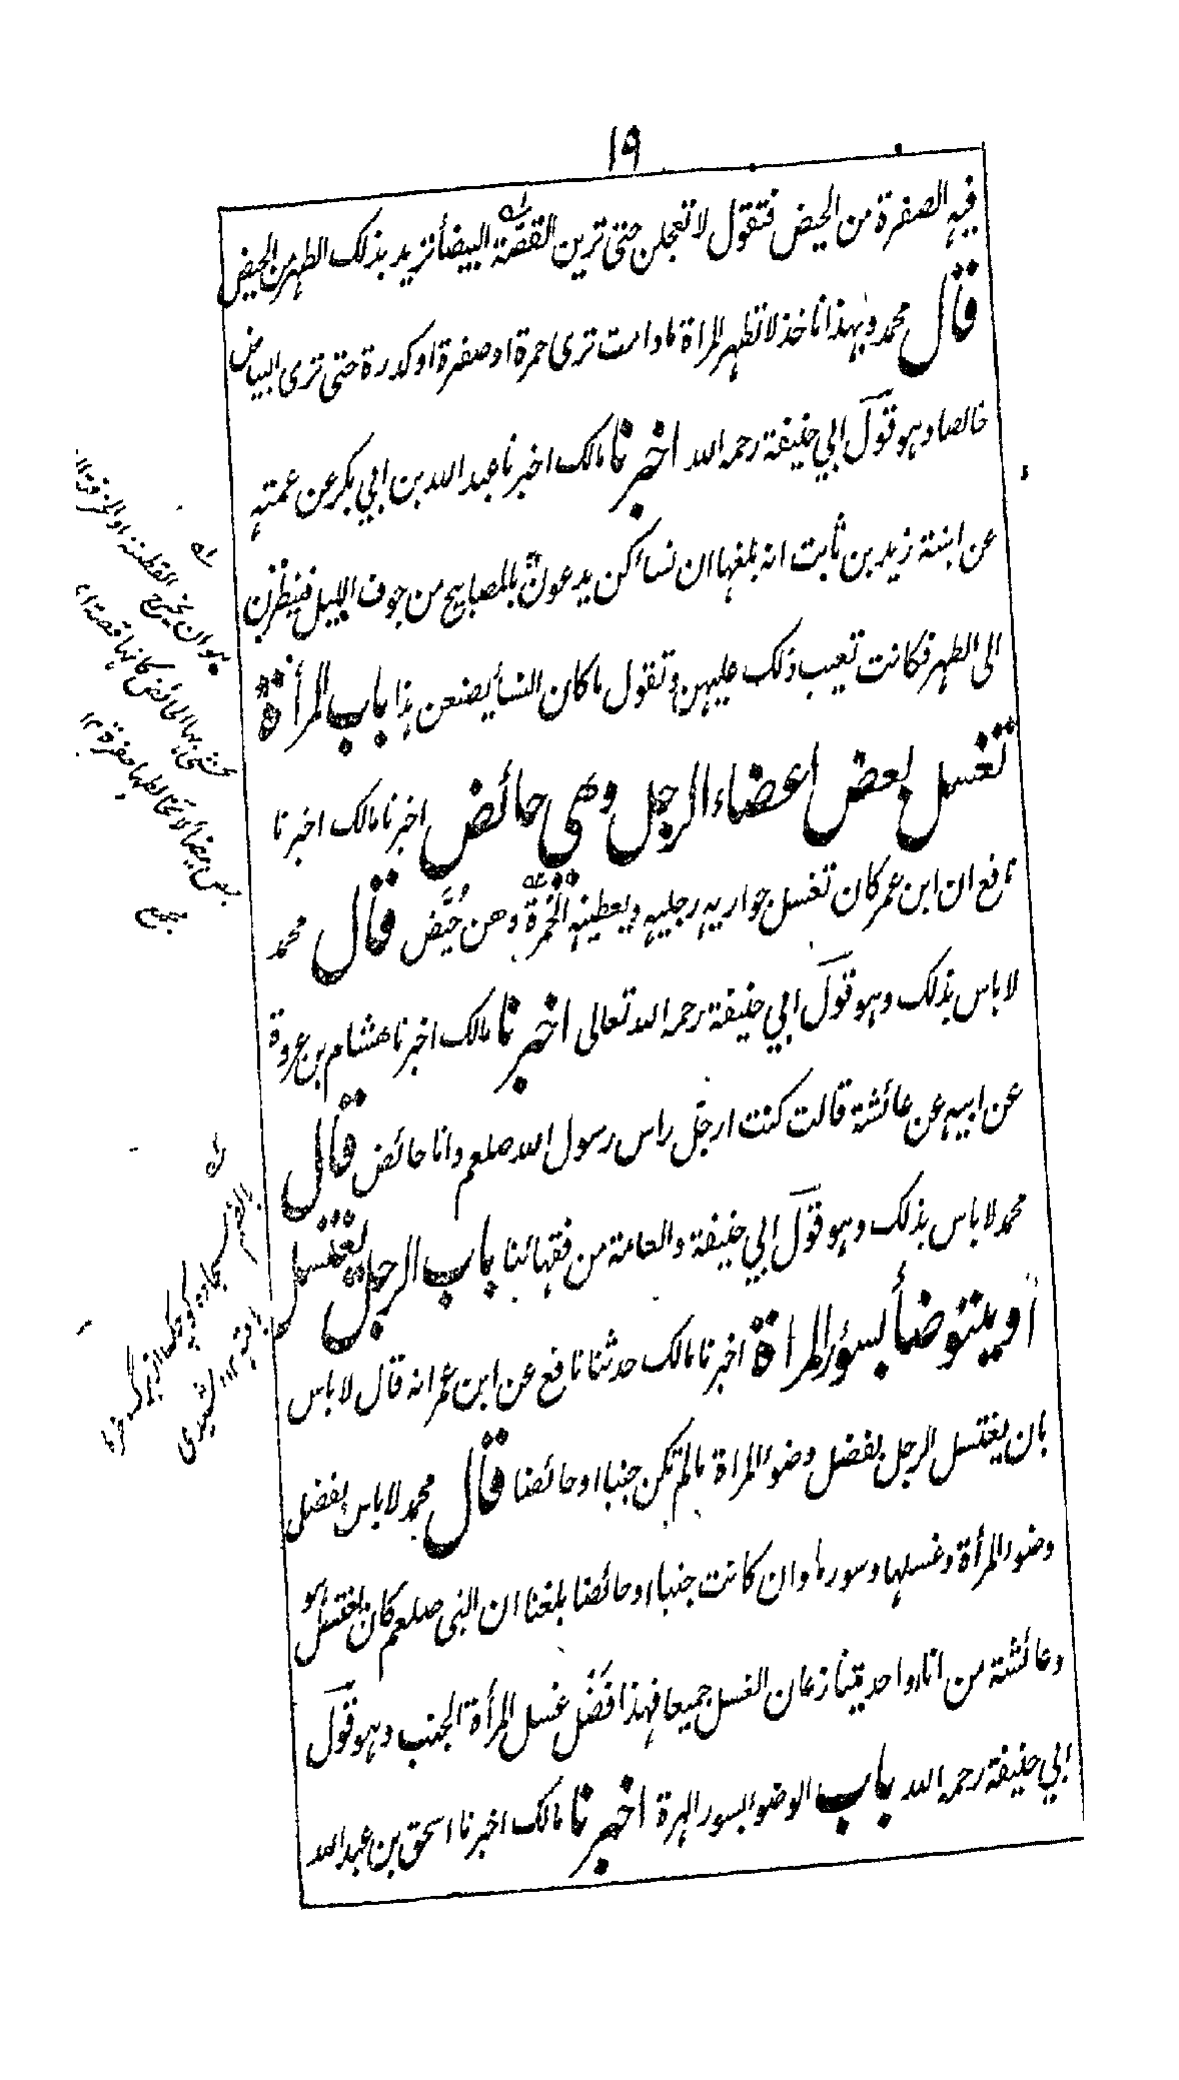 ١٩
فيه الصفرة من الحيض فتقول لا تعجلن حتى ترين القصّة البيضأ تريد بذلك الطهر من الحيض
قال محمد وبهذا ناخذ لا تطهر المراة ما دامت ترى حمرة او صفرة او كدرة حتى ترى البياض
خالصا وهو قول ابي حنيفة رحمه الله اخبرنا مالك اخبرنا عبد الله بن ابي بكر عن عمته
عن ابنة زيد بن ثابت انه بلغها ان نساء كن يدعون بالمصابيح من جوف الليل فينظرن
الى الطهر فكانت تعيب ذلك عليهن وتقول ما كان النسأ يصنعن هذا باب المرأة
تغسل بعض اعضاء الرجل وهي حائض اخبرنا مالك اخبرنا
نافع ان ابن عمر كان تغسل جواريه رجليه ويعطينه الخمرة وهن حُيَّض قال محمد
لا باس بذلك وهو قول ابي حنيفة رحمه الله تعالى اخبرنا مالك اخبرنا هشام بن عروة
عن ابيه عن عائشة قالت كنت ارجّل راس رسول الله صلعم وانا حائض قال
محمد لا باس بذلك وهو قول ابي حنيفة والعامة من فقهائنا باب الرجل يغتسل
أو يتوضأ بسؤر المراة اخبرنا مالك حدثنا نافع عن ابن عمر انه قال لا باس
بان يغتسل الرجل بفضل وضوء المراة ما لم تكن جنبا او حائضا قال محمد لا باس بفضل
وضوء المرأة وغسلها وسورها وان كانت جنبا او حائضا بلغنا ان النبى صلعم كان يغتسل هو
وعائشة من اناء واحد يتنازعان الغسل جميعا فهذا فضل غسل المرأة الجنب وهو قول
ابي حنيفة رحمه الله باب الوضوء بسور الهرة اخبرنا مالك اخبرنا اسحق بن عبد الله
هو ان يخرج القطنة او الخرقة
تحتشى بها الحائض كانها قصة
بيضاء لا يخالطها صفرة ١٢
مجمع